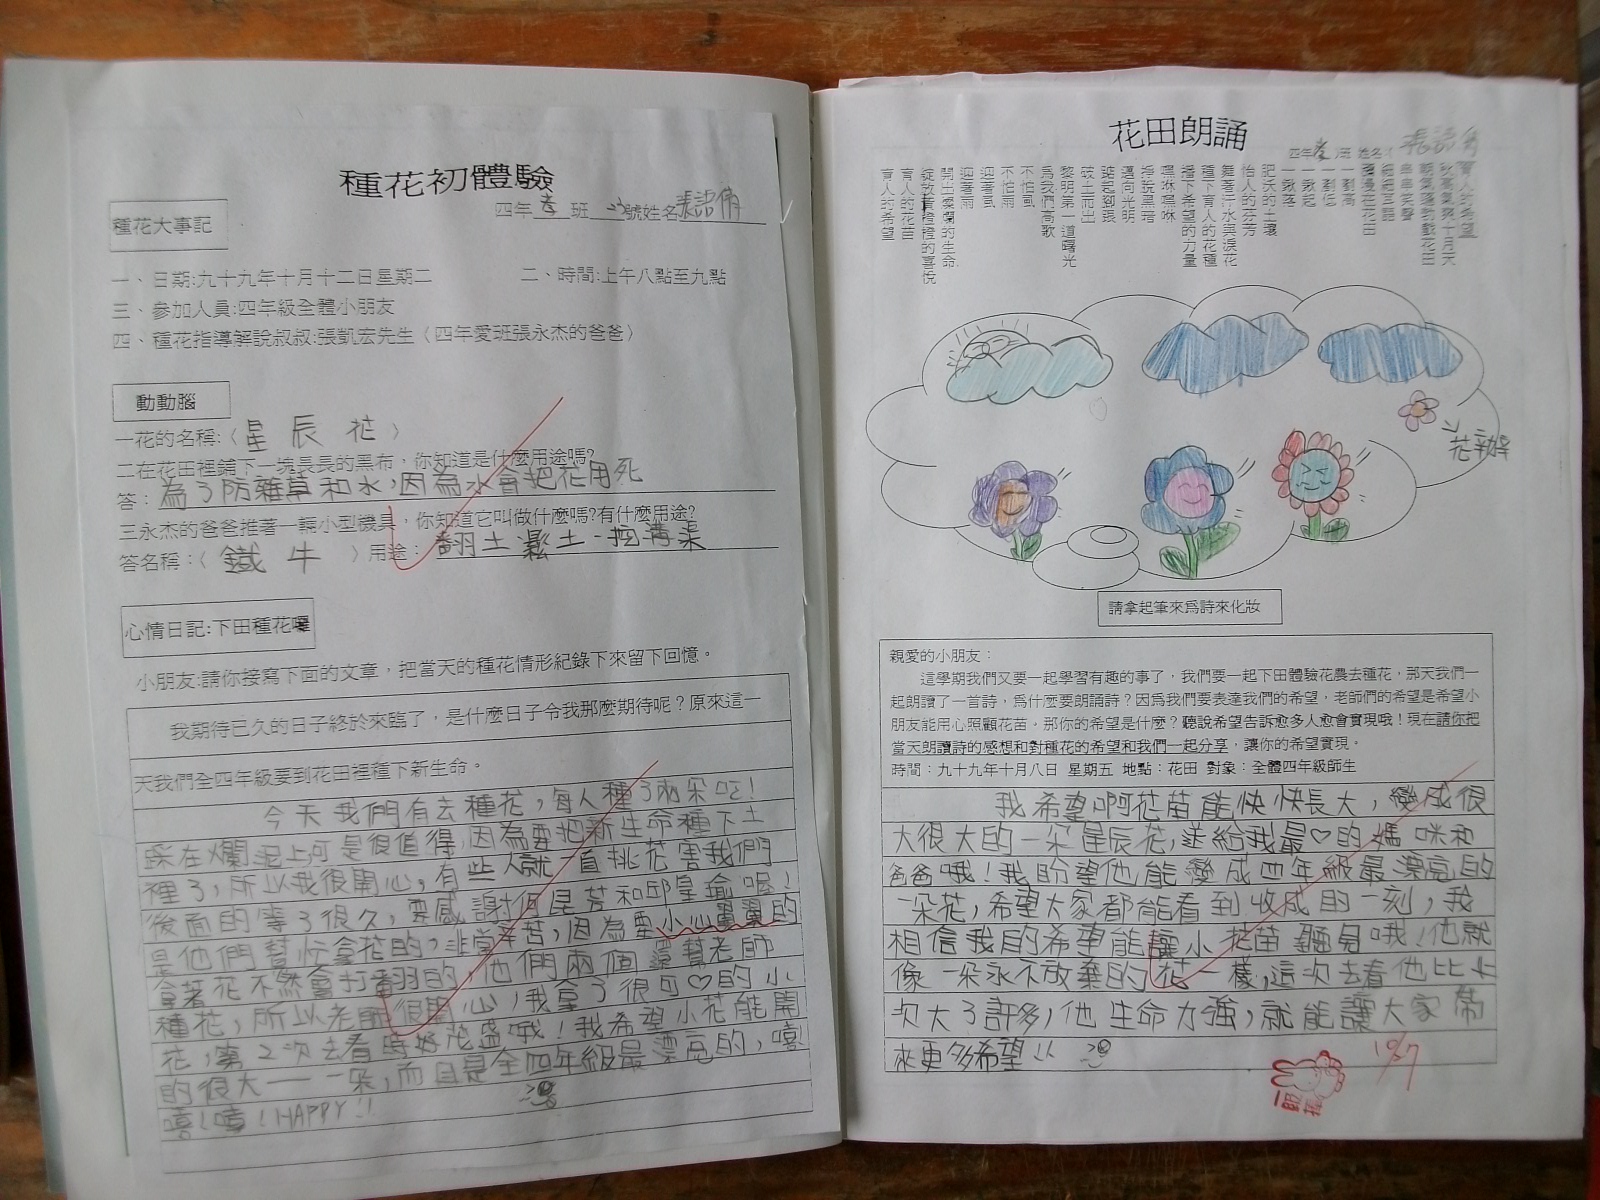 種花初體驗
四年孝班 號姓名張
種花大事記
一、日期:九十九年十月十二日星期二 二、時間:上午八點至九點
三、參加人員:四年級全體小朋友
四、種花指導解說叔叔:張凱宏先生（四年愛班張永杰的爸爸）
動動腦
一花的名稱:（星辰花）
二在花田裡鋪下一塊長長的黑布，你知道是什麼用途嗎?
答：為了防雜草和水，因為水會把花用死
三永杰的爸爸推著一輛小型機具，你知道它叫做什麼嗎?有什麼用途?
答名稱：（鐵牛）用途：翻土鬆土、挖溝渠
心情日記:下田種花囉
小朋友:請你接寫下面的文章，把當天的種花情形紀錄下來留下回憶。
我期待已久的日子終於來臨了，是什麼日子令我那麼期待呢？原來這一
天我們全四年級要到花田裡種下新生命。
今天我們有去種花，每人種了兩朵呢！
踩在爛泥上可是很值得，因為要把新生命種下土
裡了，所以我很開心，有些人就一直挑花害我們
後面的等了很久，要感謝何昆芳和邱皇瑜喔！
是他們幫忙拿花的，非常辛苦，因為要小心翼翼的
拿著花不然會打翻的，他們兩個還幫老師
種花，所以老師很開心，我拿了很可♡的小
花，第2次去看時好茂盛哦！我希望小花能開
的很大一一朵，而且是全四年級最漂亮的，嘻
嘻！嘻！HAPPY！！
花田朗誦
四年孝班 姓名 張
育人的希望
秋高氣爽十月天
朝氣蓬勃戲花田
串串笑聲
細細耳語
瀰漫在花田
一劃高
一劃低
一鍬起
一鍬落
肥沃的土壤
怡人的芬芳
舞著汗水與淚花
種下育人的花種
播下希望的力量
嘿咻嘿咻
掙脫黑暗
邁向光明
踮起腳跟
破土而出
黎明第一道曙光
為我們高歌
不怕風
不怕雨
迎著風
迎著雨
開出燦爛的生命
綻放黃橙橙的喜悅
育人的花苗
育人的希望
花瓣
請拿起筆來為詩來化妝
親愛的小朋友：
這學期我們又要一起學習有趣的事了，我們要一起下田體驗花農去種花，那天我們一
起朗讀了一首詩，為什麼要朗誦詩？因為我們要表達我們的希望，老師們的希望是希望小
朋友能用心照顧花苗。那你的希望是什麼？聽說希望告訴愈多人愈會實現哦！現在請你把
當天朗讀詩的感想和對種花的希望和我們一起分享，讓你的希望實現。
時間：九十九年十月八日 星期五 地點：花田 對象：全體四年級師生
我希望啊花苗能快快長大，變成很
大很大的一朵星辰花，送給我最♡的媽咪和
爸爸哦！我盼望他能變成四年級最漂亮的
一朵花，希望大家都能看到收成的一刻，我
相信我的希望能讓小花苗聽見哦！他就
像一朵永不放棄的花一樣，這次去看他比上
次大了許多，他生命力強，就能讓大家帶
來更多希望！！
10/27